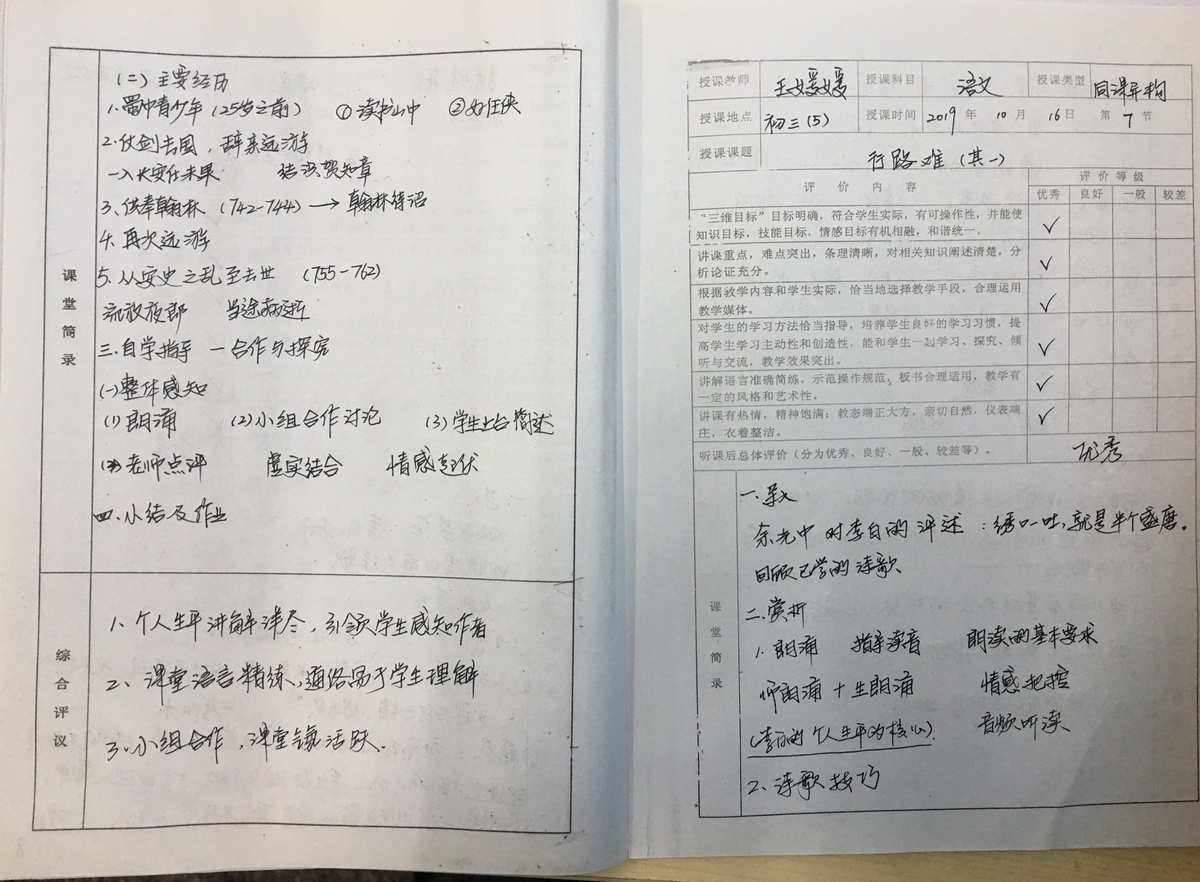 (二)主要经历
1.蜀中青少年(25岁之前) ①读书山中 ②好任侠
2.仗剑去国,辞亲远游
一入长安任未果 结识贺知章
3.供奉翰林(742-744)→翰林待诏
4.再次远游
5.从安史之乱至去世 (755-762)
流放夜郎 当涂病逝
三.自学指导 一合作与探究
(一)整体感知
(1)朗诵 (2)小组合作讨论 (3)学生上台简述
老师点评 虚实结合 情感起伏
四.小结及作业
课堂简录
1、个人生平讲解详尽,引领学生感知作者
2、课堂语言精练、通俗易于学生理解
3、小组合作,课堂气氛活跃.
综合评议
授课教师 王媛媛 授课科目 语文 授课类型 同课异构
授课地点 初三(5) 授课时间 2019年10月16日 第7节
授课课题 行路难(其一)
评价内容 评价等级
优秀 良好 一般 较差
“三维目标”目标明确,符合学生实际,有可操作性,并能使
知识目标,技能目标,情感目标有机相融,和谐统一。 ✓
讲课重点,难点突出,条理清晰,对相关知识阐述清楚,分
析论证充分。 ✓
根据教学内容和学生实际,恰当地选择教学手段,合理运用
教学媒体。 ✓
对学生的学习方法恰当指导,培养学生良好的学习习惯,提
高学生学习主动性和创造性,能和学生一起学习、探究、倾
听与交流,教学效果突出。 ✓
讲解语言准确简练,示范操作规范,板书合理适用,教学有
一定的风格和艺术性。 ✓
讲课有热情,精神饱满;教态端正大方,亲切自然,仪表端
庄,衣着整洁。 ✓
听课后总体评价(分为优秀、良好、一般、较差等)。 优秀
一.导入
余光中对李白的评述:绣口一吐,就是半个盛唐。
回顾已学的诗歌
二.赏析
1.朗诵 指导读音 朗读的基本要求
师朗诵+生朗诵 情感把控
(李白的个人生平的核心) 音频听读
2、诗歌技巧
课堂简录